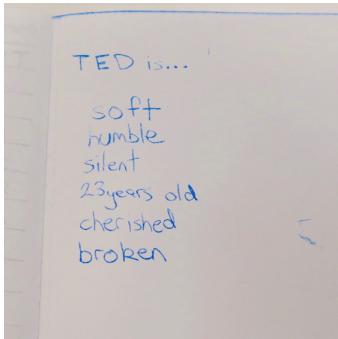 TED is...
soft
humble
silent
23years old
cherished
broken